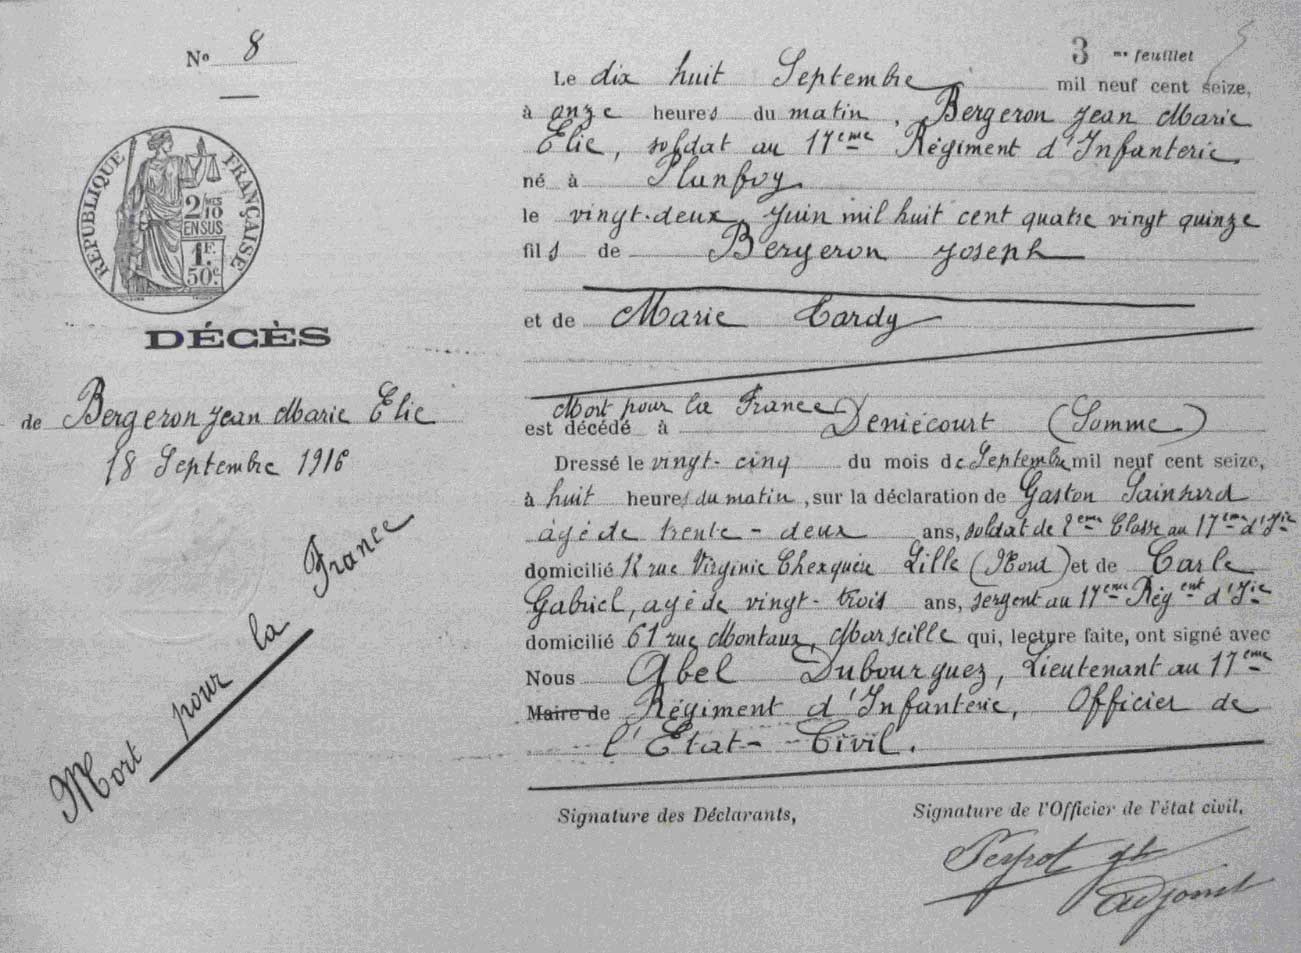 Nº 8
3 me feuillet
RÉPUBLIQUE FRANÇAISE
2/10 MES
EN SUS
1 F.
50 c.
DÉCÈS
de Bergeron Jean Marie Elie
18 Septembre 1916
Mort pour la France
Le dix huit Septembre mil neuf cent seize,
à onze heures du matin, Bergeron Jean Marie
Elie, soldat au 17eme Régiment d'Infanterie
né à Planfoy
le vingt-deux Juin mil huit cent quatre vingt quinze
fils de Bergeron Joseph
et de Marie Cardy
Mort pour la France
est décédé à Deniécourt (Somme)
Dressé le vingt-cinq du mois de Septembre mil neuf cent seize,
à huit heures du matin, sur la déclaration de Gaston
âgé de trente-deux ans, soldat de 2eme Classe au 17eme d'Ie
domicilié rue Virginie Lille (Nord) et de Carle
Gabriel, agé de vingt-trois ans, sergent au 17eme Régent d'Ie
domicilié 61 rue Montaux, Marseille qui, lecture faite, ont signé avec
Nous Abel Dubourguez, Lieutenant au 17eme
Maire de Régiment d'Infanterie, Officier de
l'Etat-Civil.
Signature des Déclarants,
Signature de l'Officier de l'état civil,